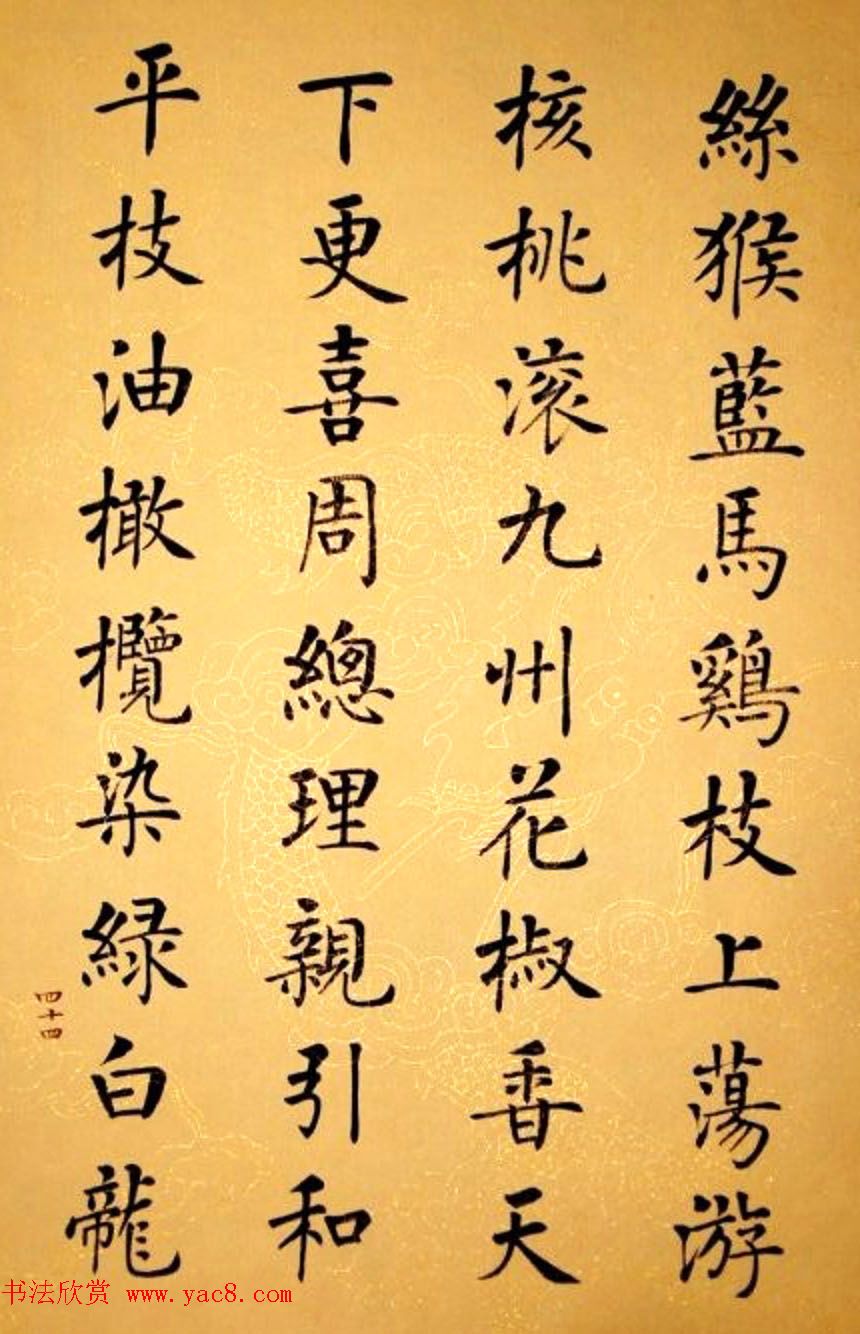 絲猴藍馬鷄枝上蕩游
核桃滚九州花椒香天
下更喜周總理親引和
平枝油橄欖染緑白龍
四十四
书法欣赏 www.yac8.com